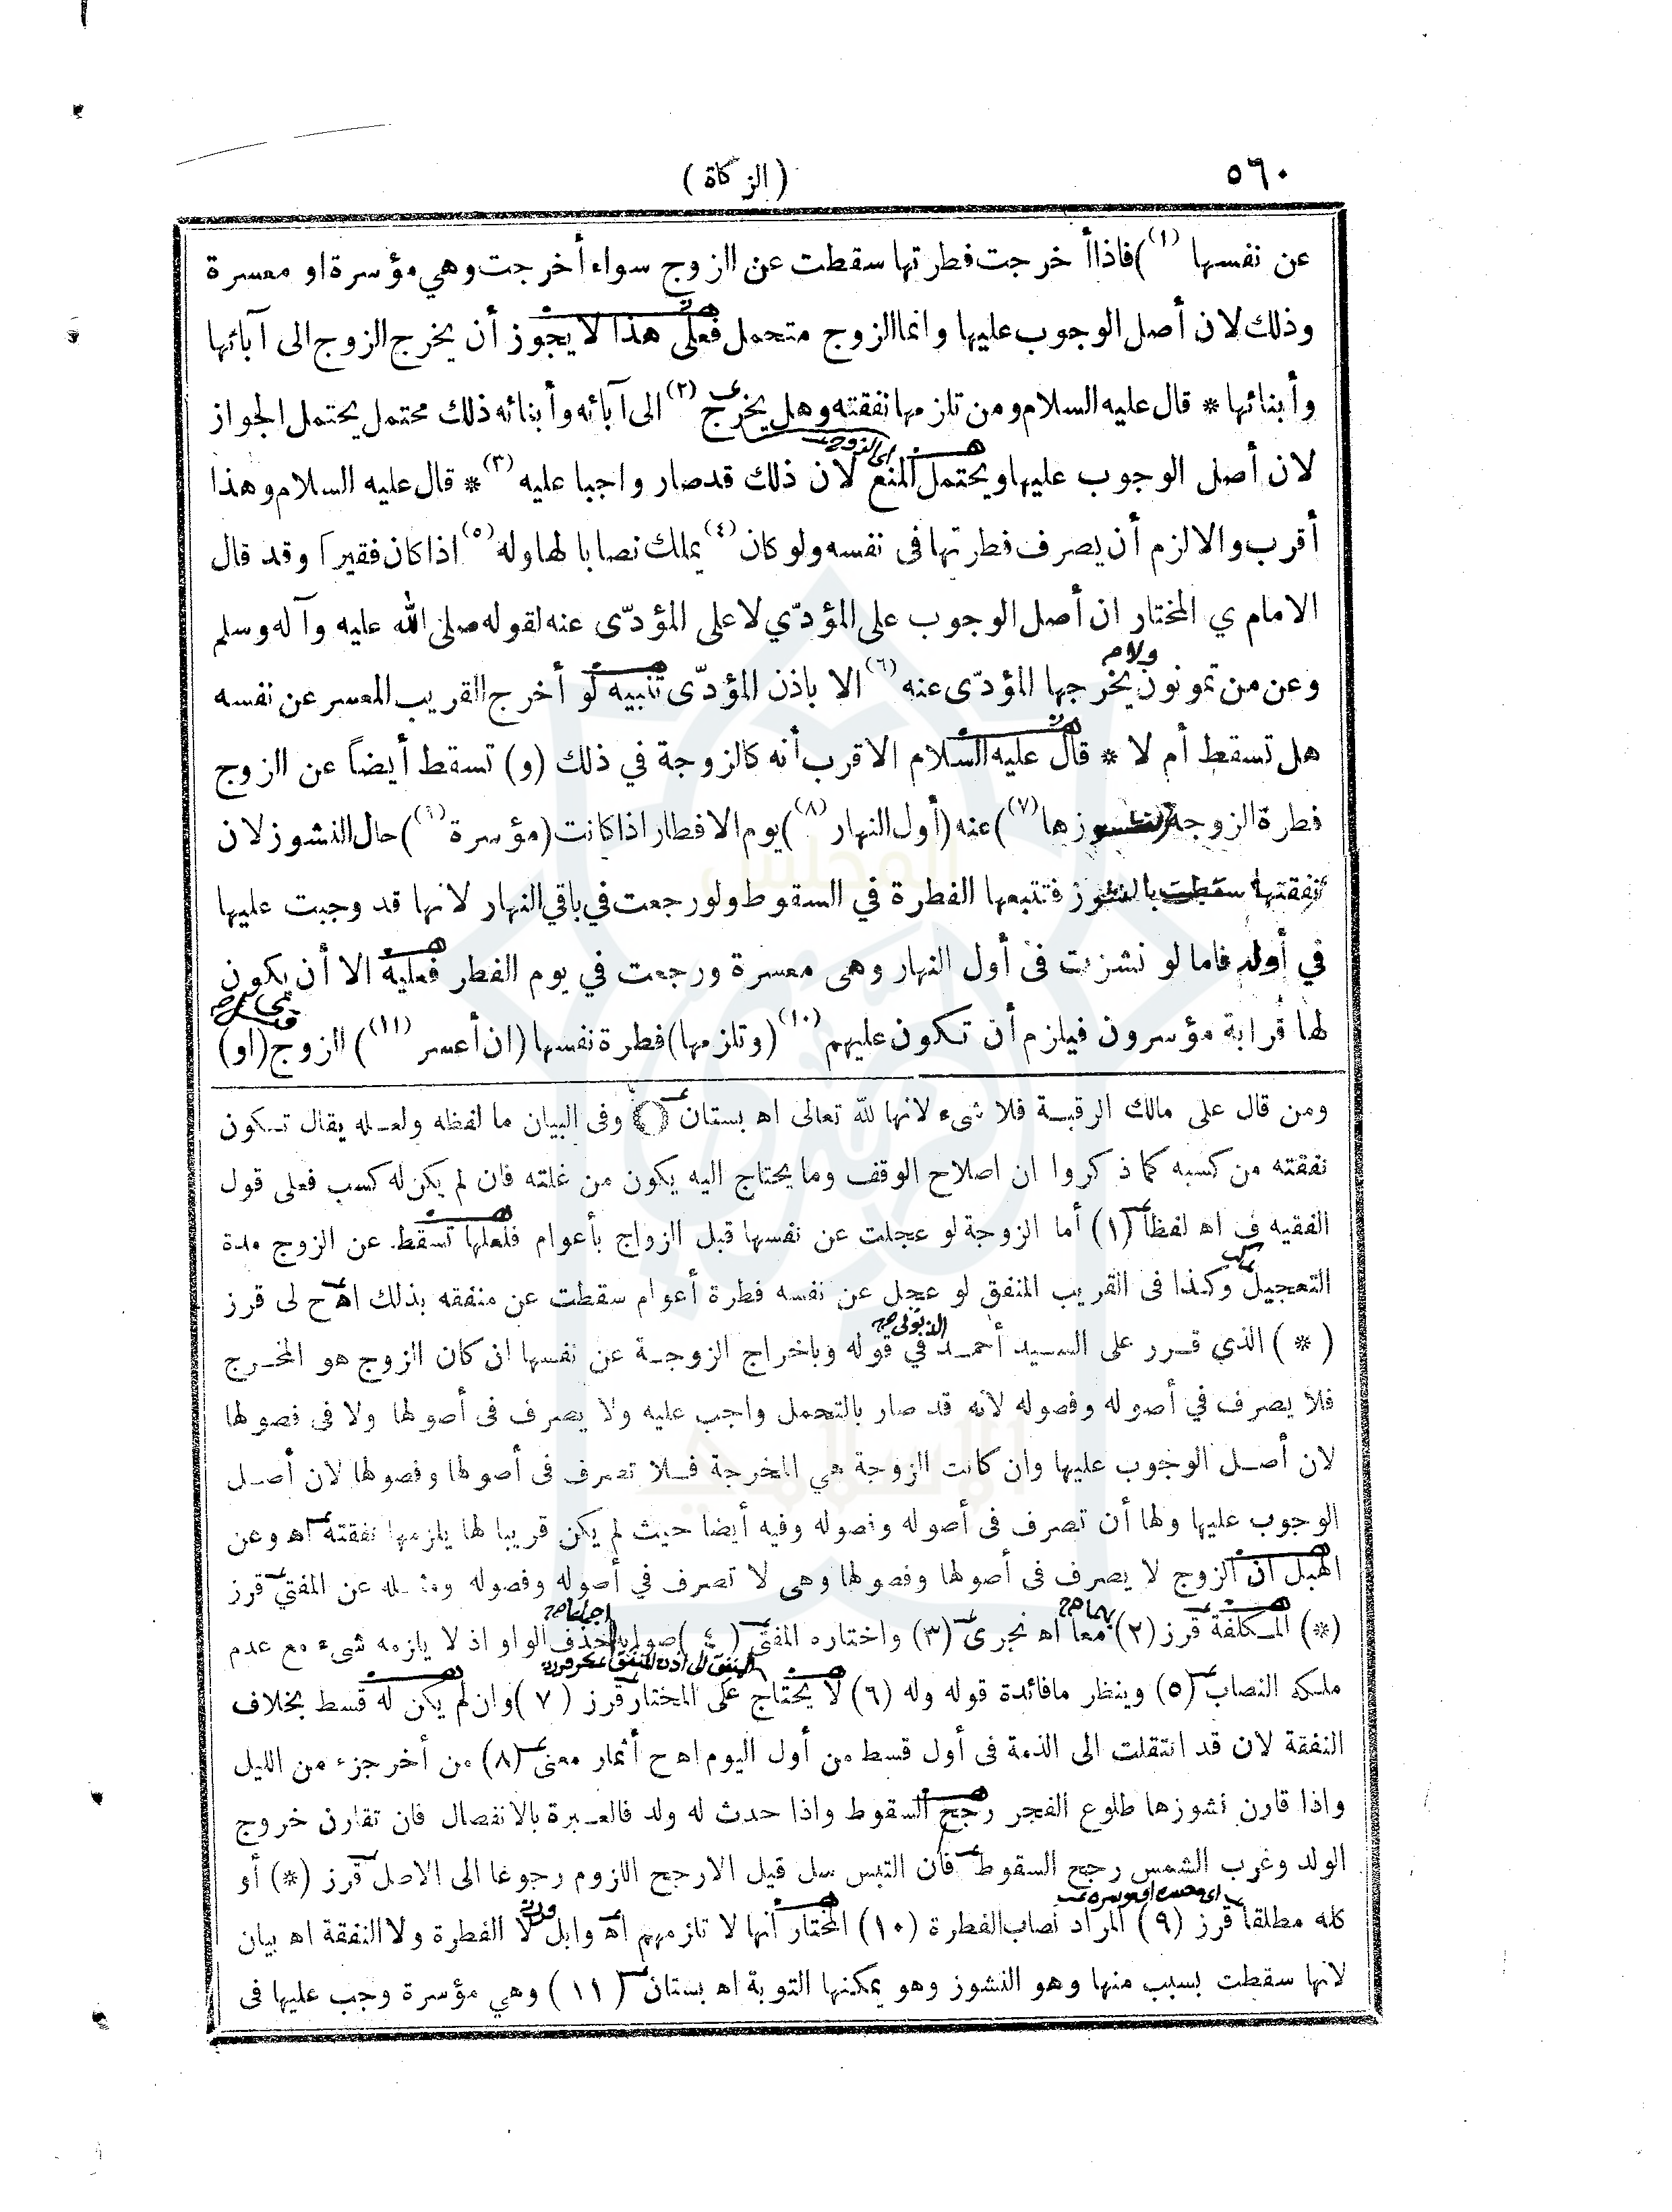 ٥٦٠
( الزكاة )
عن نفسها (١) ) فاذا أخرجت فطرتها سقطت عن الزوج سواء أخرجت وهي مؤسرة او معسرة
وذلك لان أصل الوجوب عليها وانما الزوج متحمل فعلى هذا لا يجوز أن يخرج الزوج الى آبائها
وأبنائها * قال عليه السلام ومن تلزمها نفقته وهل يخرج (٢) الى آبائه وأبنائه ذلك محتمل يحتمل الجواز
لان أصل الوجوب عليها ويحتمل المنع لان ذلك قد صار واجبا عليه (٣) * قال عليه السلام وهذا
أقرب والا لزم أن يصرف فطرتها فى نفسه ولو كان (٤) يملك نصابا لها وله (٥) اذا كان فقيرا وقد قال
الامام ي المختار ان أصل الوجوب على المؤدّي لا على المؤدّى عنه لقوله صلى الله عليه وآله وسلم
وعن من تمونون يخرجها المؤدّى عنه (٦) الا باذن المؤدّى تنبيه لو أخرج القريب المعسر عن نفسه
هل تسقط أم لا * قال عليه السلام الاقرب أنه كالزوجة في ذلك (و) تسقط أيضاً عن الزوج
فطرة الزوجة (بنشوزها (٧) ) عنه (أول النهار (٨) ) يوم الافطار اذا كانت (مؤسرة (٩) ) حال النشوز لان
نفقتها سقطت بالنشوز فتتبعها الفطرة في السقوط ولو رجعت في باقي النهار لانها قد وجبت عليها
في أوله فاما لو نشزت فى أول النهار وهى معسرة ورجعت في يوم الفطر فعليه الا أن يكون
لها قرابة مؤسرون فيلزم أن تكون عليهم (١٠) (وتلزمها) فطرة نفسها (ان أعسر (١١) ) الزوج (او)
ومن قال على مالك الرقبة فلا شىء لانها لله تعالى اه بستان () وفى البيان ما لفظه ولعله يقال تكون
نفقته من كسبه كما ذكروا ان اصلاح الوقف وما يحتاج اليه يكون من غلته فان لم يكن له كسب فعلى قول
الفقيه ف اه لفظا (١) أما الزوجة لو عجلت عن نفسها قبل الزواج بأعوام فلعلها تسقط عن الزوج مدة
التعجيل وكذا فى القريب المنفق لو عجل عن نفسه فطرة أعوام سقطت عن منفقه بذلك اه ح لى قرز
( * ) الذي قرر على السيد أحمد في قوله وباخراج الزوجة عن نفسها ان كان الزوج هو المخرج
فلا يصرف في أصوله وفصوله لانه قد صار بالتحمل واجب عليه ولا يصرف فى أصولها ولا فى فصولها
لان أصل الوجوب عليها وان كانت الزوجة هي المخرجة فلا تصرف فى أصولها وفصولها لان أصل
الوجوب عليها ولها أن تصرف فى أصوله وفصوله وفيه أيضا حيث لم يكن قريبا لها يلزمها نفقته اه وعن
الهبل ان الزوج لا يصرف فى أصولها وفصولها وهى لا تصرف في أصوله وفصوله ومثله عن المفتي قرز
(*) المكلفة قرز (٢) معا اه نجرى (٣) واختاره المفتى (٤) صوابه حذف الواو اذ لا يلزمه شىء مع عدم
ملكه النصاب (٥) وينظر ما فائدة قوله وله (٦) لا يحتاج على المختار قرز (٧) وان لم يكن له قسط بخلاف
النفقة لان قد انتقلت الى الذمة فى أول قسط من أول اليوم اه ح أثمار معنى (٨) من أخر جزء من الليل
واذا قارن نشوزها طلوع الفجر رجح السقوط واذا حدث له ولد فالعبرة بالانفصال فان تقارن خروج
الولد وغرب الشمس رجح السقوط فان التبس سل قيل الارجح اللزوم رجوعا الى الاصل قرز (*) أو
كله مطلقا قرز (٩) المراد نصاب الفطرة (١٠) المختار أنها لا تلزمهم اه وابل لا الفطرة ولا النفقة اه بيان
لانها سقطت بسبب منها وهو النشوز وهو يمكنها التوبة اه بستان (١١) وهي مؤسرة وجب عليها فى